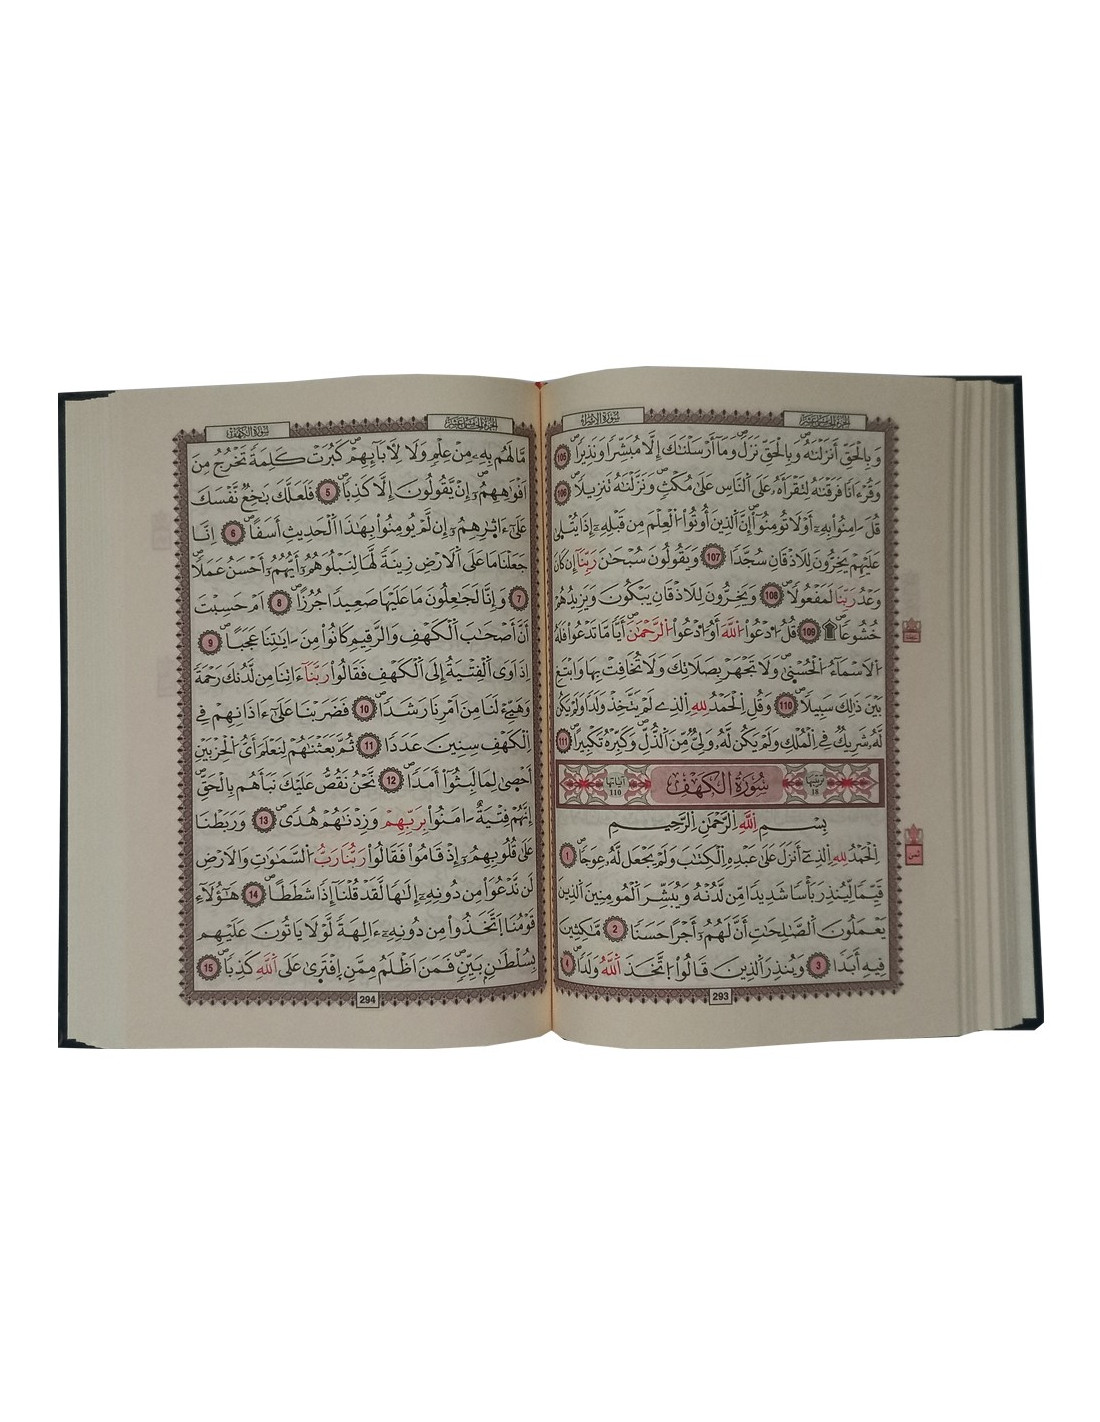 سورة الإسراء
الجزء الخامس عشر
وَبِالْحَقِّ أَنزَلْنَٰهُ وَبِالْحَقِّ نَزَلَۖ وَمَا أَرْسَلْنَٰكَ إِلَّا مُبَشِّرًا وَنَذِيرًاۖ 105
وَقُرْءَانًا فَرَقْنَٰهُ لِتَقْرَأَهُۥ عَلَى النَّاسِ عَلَىٰ مُكْثٍۖ وَنَزَّلْنَٰهُ تَنزِيلًاۖ 106
قُلَ ـٰامِنُوا بِهِۦٓ أَوْ لَا تُومِنُوٓاۖ إِنَّ الَّذِينَ أُوتُوا الْعِلْمَ مِن قَبْلِهِۦٓ إِذَا يُتْلَىٰ
عَلَيْهِمْ يَخِرُّونَ لِلَاذْقَانِ سُجَّدًا 107 وَيَقُولُونَ سُبْحَٰنَ رَبِّنَا إِن كَانَ
وَعْدُ رَبِّنَا لَمَفْعُولًاۖ 108 وَيَخِرُّونَ لِلَاذْقَانِ يَبْكُونَ وَيَزِيدُهُمْ
خُشُوعًاۖ 109 قُلُ ادْعُوا اللَّهَ أَوُ ادْعُوا الرَّحْمَٰنَۖ أَيًّا مَّا تَدْعُوا فَلَهُ
الَاسْمَاءُ الْحُسْنَىٰۖ وَلَا تَجْهَرْ بِصَلَاتِكَ وَلَا تُخَافِتْ بِهَا وَابْتَغِ
بَيْنَ ذَٰلِكَ سَبِيلًاۖ 110 وَقُلِ الْحَمْدُ لِلهِ الَّذِي لَمْ يَتَّخِذْ وَلَدًا وَلَمْ يَكُن
لَّهُۥ شَرِيكٌ فِي الْمُلْكِ وَلَمْ يَكُن لَّهُۥ وَلِيٌّ مِّنَ الذُّلِّۖ وَكَبِّرْهُ تَكْبِيرًاۖ 111
ترتيبها 18 سُورَةُ الْكَهْفِ آياتها 110
بِسْمِ اللَّهِ الرَّحْمَٰنِ الرَّحِيمِ
الْحَمْدُ لِلهِ الَّذِي أَنزَلَ عَلَىٰ عَبْدِهِ الْكِتَٰبَ وَلَمْ يَجْعَل لَّهُۥ عِوَجًاۖ 1
ثمن
قَيِّمًا لِّيُنذِرَ بَأْسًا شَدِيدًا مِّن لَّدُنْهُ وَيُبَشِّرَ الْمُومِنِينَ الَّذِينَ
يَعْمَلُونَ الصَّٰلِحَٰتِ أَنَّ لَهُمُۥٓ أَجْرًا حَسَنًا 2 مَّٰكِثِينَ
فِيهِ أَبَدًا 3 وَيُنذِرَ الَّذِينَ قَالُوا اتَّخَذَ اللَّهُ وَلَدًاۖ 4
293
سورة الكهف
الجزء الخامس عشر
مَّا لَهُم بِهِۦ مِنْ عِلْمٍ وَلَا لِأَبَائِهِمْۖ كَبُرَتْ كَلِمَةً تَخْرُجُ مِنَ
اَفْوَٰهِهِمُۥٓۖ إِن يَقُولُونَ إِلَّا كَذِبًاۖ 5 فَلَعَلَّكَ بَٰخِعٌ نَّفْسَكَ
عَلَىٰ ءَاثَٰرِهِمُۥٓ إِن لَّمْ يُومِنُوا بِهَٰذَا الْحَدِيثِ أَسَفًاۖ 6 اِنَّا
جَعَلْنَا مَا عَلَى الَارْضِ زِينَةً لَّهَا لِنَبْلُوَهُمُۥٓ أَيُّهُمُۥٓ أَحْسَنُ عَمَلًاۖ
7 وَإِنَّا لَجَٰعِلُونَ مَا عَلَيْهَا صَعِيدًا جُرُزًاۖ 8 اَمْ حَسِبْتَ
أَنَّ أَصْحَٰبَ الْكَهْفِ وَالرَّقِيمِ كَانُوا مِنَ ـٰايَٰتِنَا عَجَبًاۖ 9
اِذَ اوَى الْفِتْيَةُ إِلَى الْكَهْفِ فَقَالُوا رَبَّنَا ءَاتِنَا مِن لَّدُنكَ رَحْمَةً
وَهَيِّئْ لَنَا مِنَ اَمْرِنَا رَشَدًاۖ 10 فَضَرَبْنَا عَلَىٰ ءَاذَانِهِمْ فِي
الْكَهْفِ سِنِينَ عَدَدًا 11 ثُمَّ بَعَثْنَٰهُمْ لِنَعْلَمَ أَيُّ الْحِزْبَيْنِ
أَحْصَىٰ لِمَا لَبِثُوا أَمَدًاۖ 12 نَّحْنُ نَقُصُّ عَلَيْكَ نَبَأَهُم بِالْحَقِّۖ
إِنَّهُمْ فِتْيَةٌ ـٰامَنُوا بِرَبِّهِمْ وَزِدْنَٰهُمْ هُدًىۖ 13 وَرَبَطْنَا
عَلَىٰ قُلُوبِهِمُۥٓ إِذْ قَامُوا فَقَالُوا رَبُّنَا رَبُّ السَّمَٰوَٰتِ وَالَارْضِ
لَن نَّدْعُوَا مِن دُونِهِۦٓ إِلَٰهًا لَّقَدْ قُلْنَا إِذًا شَطَطًاۖ 14 هَٰؤُلَاءِ
قَوْمُنَا اتَّخَذُوا مِن دُونِهِۦٓ ءَالِهَةً لَّوْلَا يَاتُونَ عَلَيْهِم
بِسُلْطَٰنٍ بَيِّنٍۖ فَمَنَ اَظْلَمُ مِمَّنِ افْتَرَىٰ عَلَى اللَّهِ كَذِبًاۖ 15
294